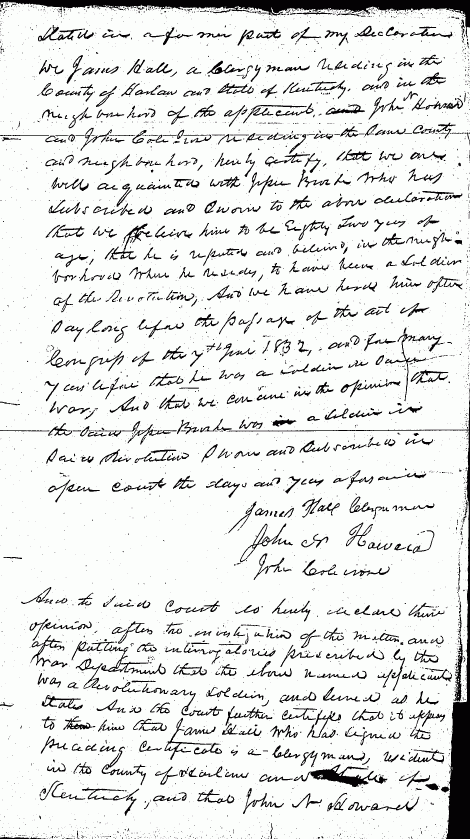 Stated in a former part of my Declaration
We James Hall, a Clergyman residing in the
County of Harlan and State of Kentucky, and in the
neighbourhood of the applicant, and John N Howard
and John residing in the same County
and neighbourhood, hereby certify, that we are
well acquainted with Jesse Brock who has
subscribed and sworn to the above declaration
that we believe him to be Eighty two years of
age, that he is reputed and believed, in the neigh-
borhood where he resides, to have been a soldier
of the Revolution, And we have heard him often
say long before the passage of the act of
Congress of the 7th June 1832, and for many
years before that he was a soldier in said
War, And that we concur in the opinion that
the said Jesse Brock was in a soldier in
said Revolution Sworn and subscribed in
open court the days and year aforesaid
James Hall Clergyman
John N Howard
John
And the said Court do hereby declare their
opinion, after the investigation of the matter, and
after putting the interrogatories prescribed by the
War Department that the above named applicant
was a Revolutionary soldier, and served as he
states And the Court further certifies that it appears
to them him that James Hall who has signed the
preceding certificate is a Clergyman, resident
in the County of Harlan and State of
Kentucky, and that John N Howard